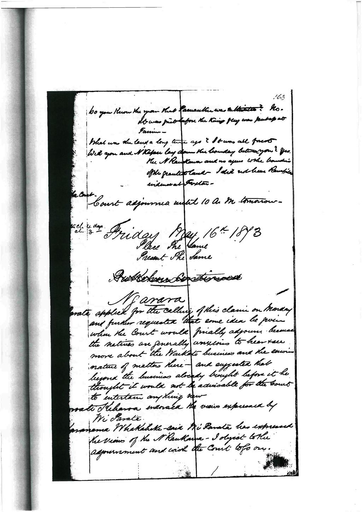 163
Do you know the year that was ? No.
It was just before the King flag was put up at
What was the land a long time ago? It was all forest
Did you and N'Kapu lay down the boundary between you? Yes
the N'Raukawa and us agreed to the boundary
of the granted land - I did not hear
evidence at Foxton.
the Court.
Court adjourned until 10 A.M. tomorrow-
Friday May 16th 1873
Place The Same
Present The Same
Continued
Ngarara
applied for the calling of this claim on Monday
and further requested that some idea be given
when the Court would finally adjourn because
the natives are generally anxious to hear
more about the Waikato business and the
nature of matters there - and suggested that
beyond the business already brought before it he
thought it would not be advisable for the Court
to entertain anything new
endorsed the views expressed by
Wi Parata.
said Wi Parata has expressed
the views of the N'Raukawa - I object to the
adjournment and wish the Court to go on.